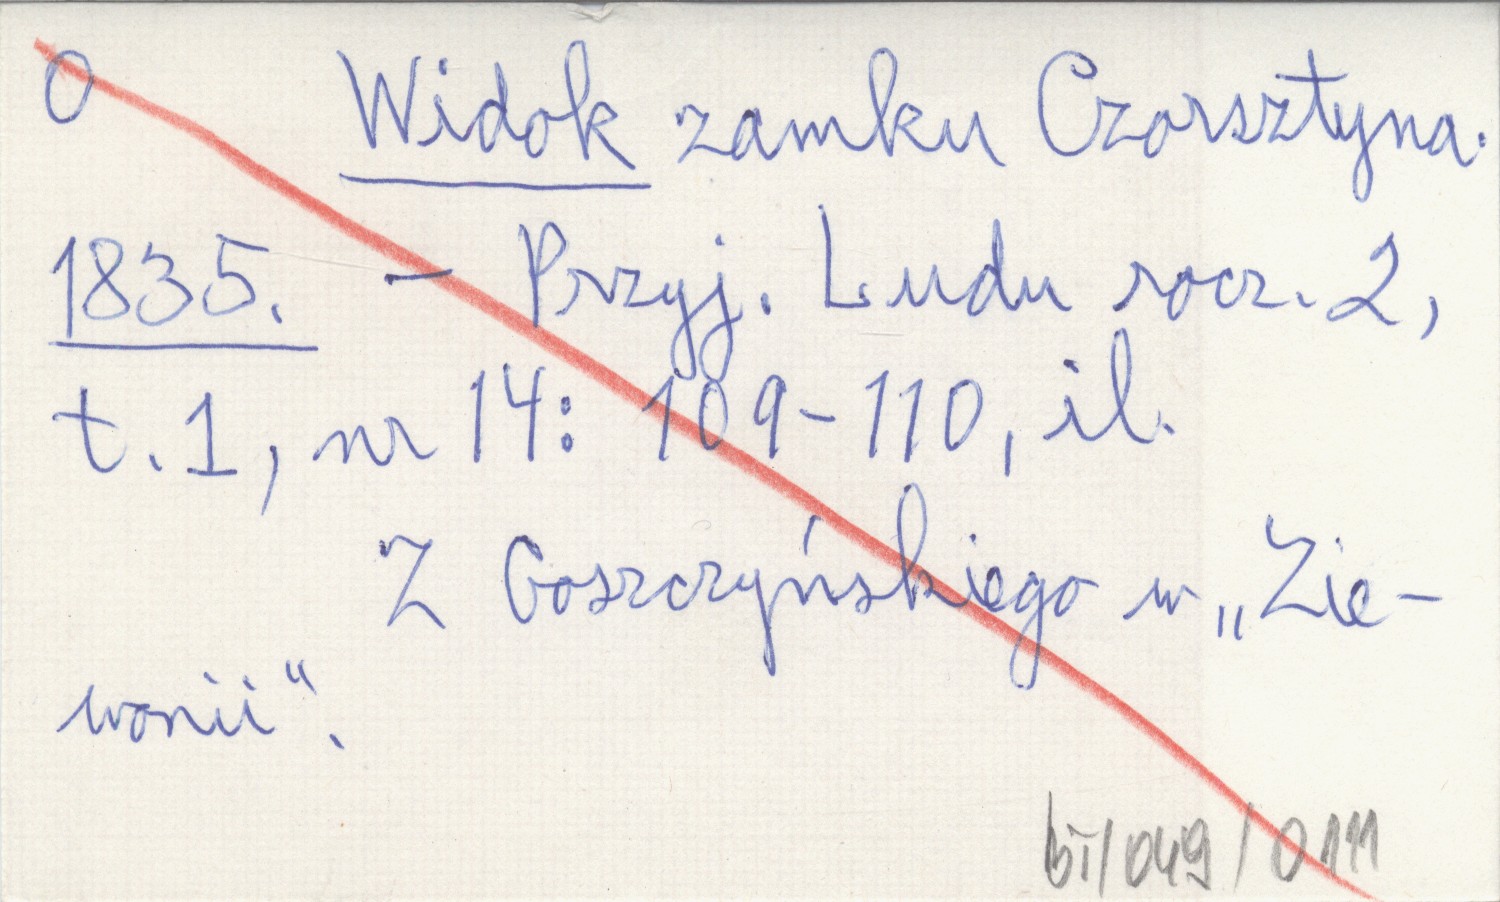 0 Widok zamku Czorsztyna.
1835. – Przyj. Ludu rocz. 2,
t. 1, nr 14: 109-110, il.
Z Goszczyńskiego w „Zie-
wonii“.
bī/049/0111